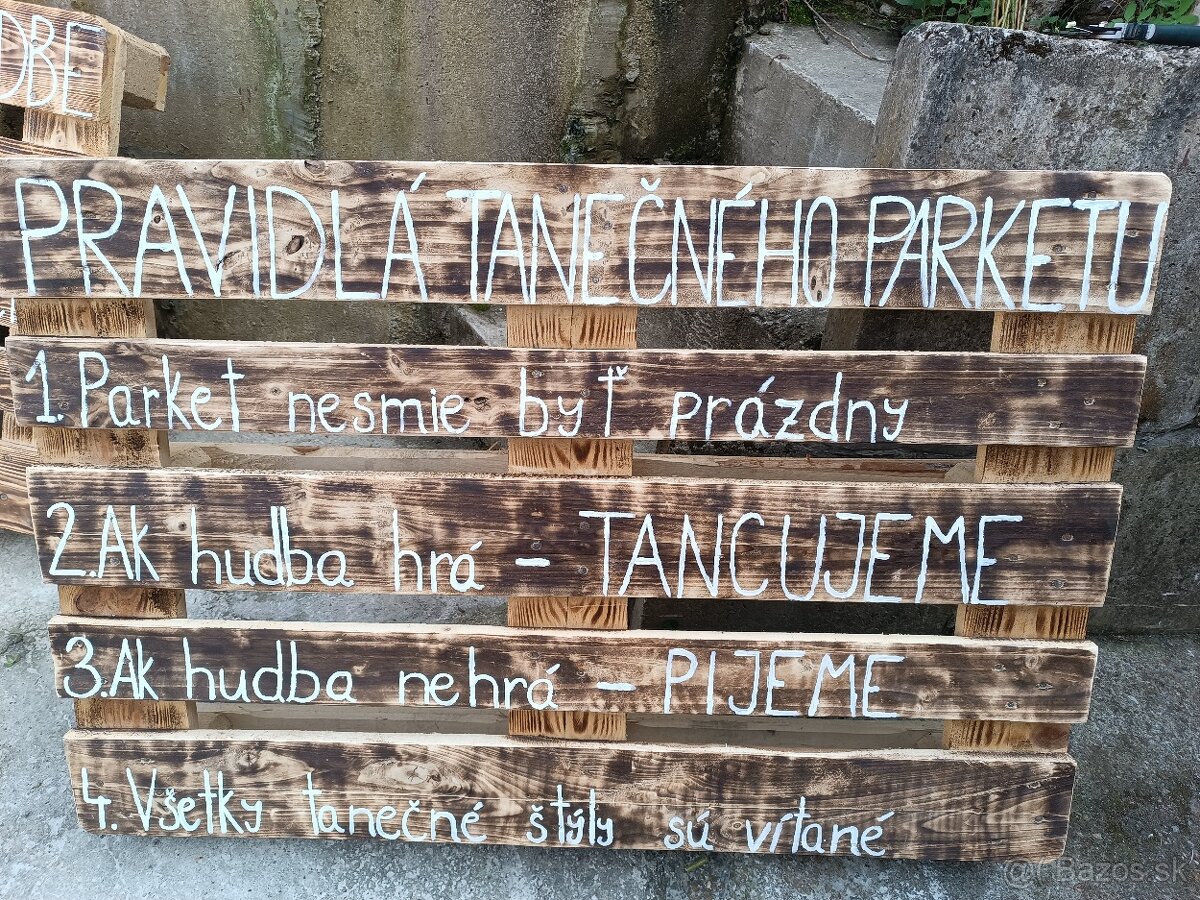 DBE
PRAVIDLÁ TANEČNÉHO PARKETU
1. Parket nesmie byť prázdny
2. Ak hudba hrá - TANCUJEME
3. Ak hudba nehrá - PIJEME
4. Všetky tanečné štýly sú vítané
Bazos.sk